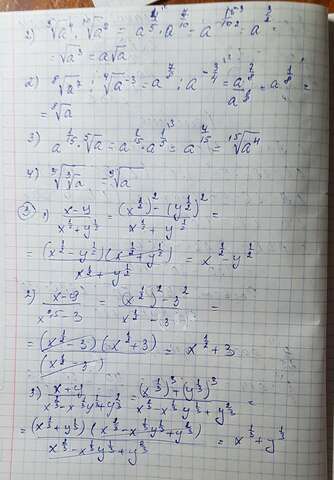 2) ⁵√a⁴ · ¹⁰√a⁷ = a^(4/5) · a^(7/10) = a^(15/10) = a^(3/2)
= √a³ = a√a
2) ⁸√a⁷ : ⁴√a⁻³ = a^(7/8) : a^(-3/4) =
= ⁸√a
3) a^(1/15) · ⁵√a = a^(1/15) · a^(1/5) = a^(4/15) = ¹⁵√a⁴
4) = ⁹√a
3) 1) (x-y)/(x^(1/2)+y^(1/2)) = ((x^(1/2))² - (y^(1/2))²)/(x^(1/2)+y^(1/2)) =
= ((x^(1/2)-y^(1/2))(x^(1/2)+y^(1/2)))/(x^(1/2)+y^(1/2)) = x^(1/2)-y^(1/2)
2) (x-9)/(x^(0,5)-3) = ((x^(1/2))²-3²)/(x^(1/2)-3) =
= ((x^(1/2)-3)(x^(1/2)+3))/(x^(1/2)-3) = x^(1/2)+3
3) (x+y)/(x^(2/3)-x^(1/3)y^(1/3)+y^(2/3)) = ((x^(1/3))³+(y^(1/3))³)/(x^(2/3)-x^(1/3)y^(1/3)+y^(2/3)) =
= ((x^(1/3)+y^(1/3))(x^(2/3)-x^(1/3)y^(1/3)+y^(2/3)))/(x^(2/3)-x^(1/3)y^(1/3)+y^(2/3)) = x^(1/3)+y^(1/3)